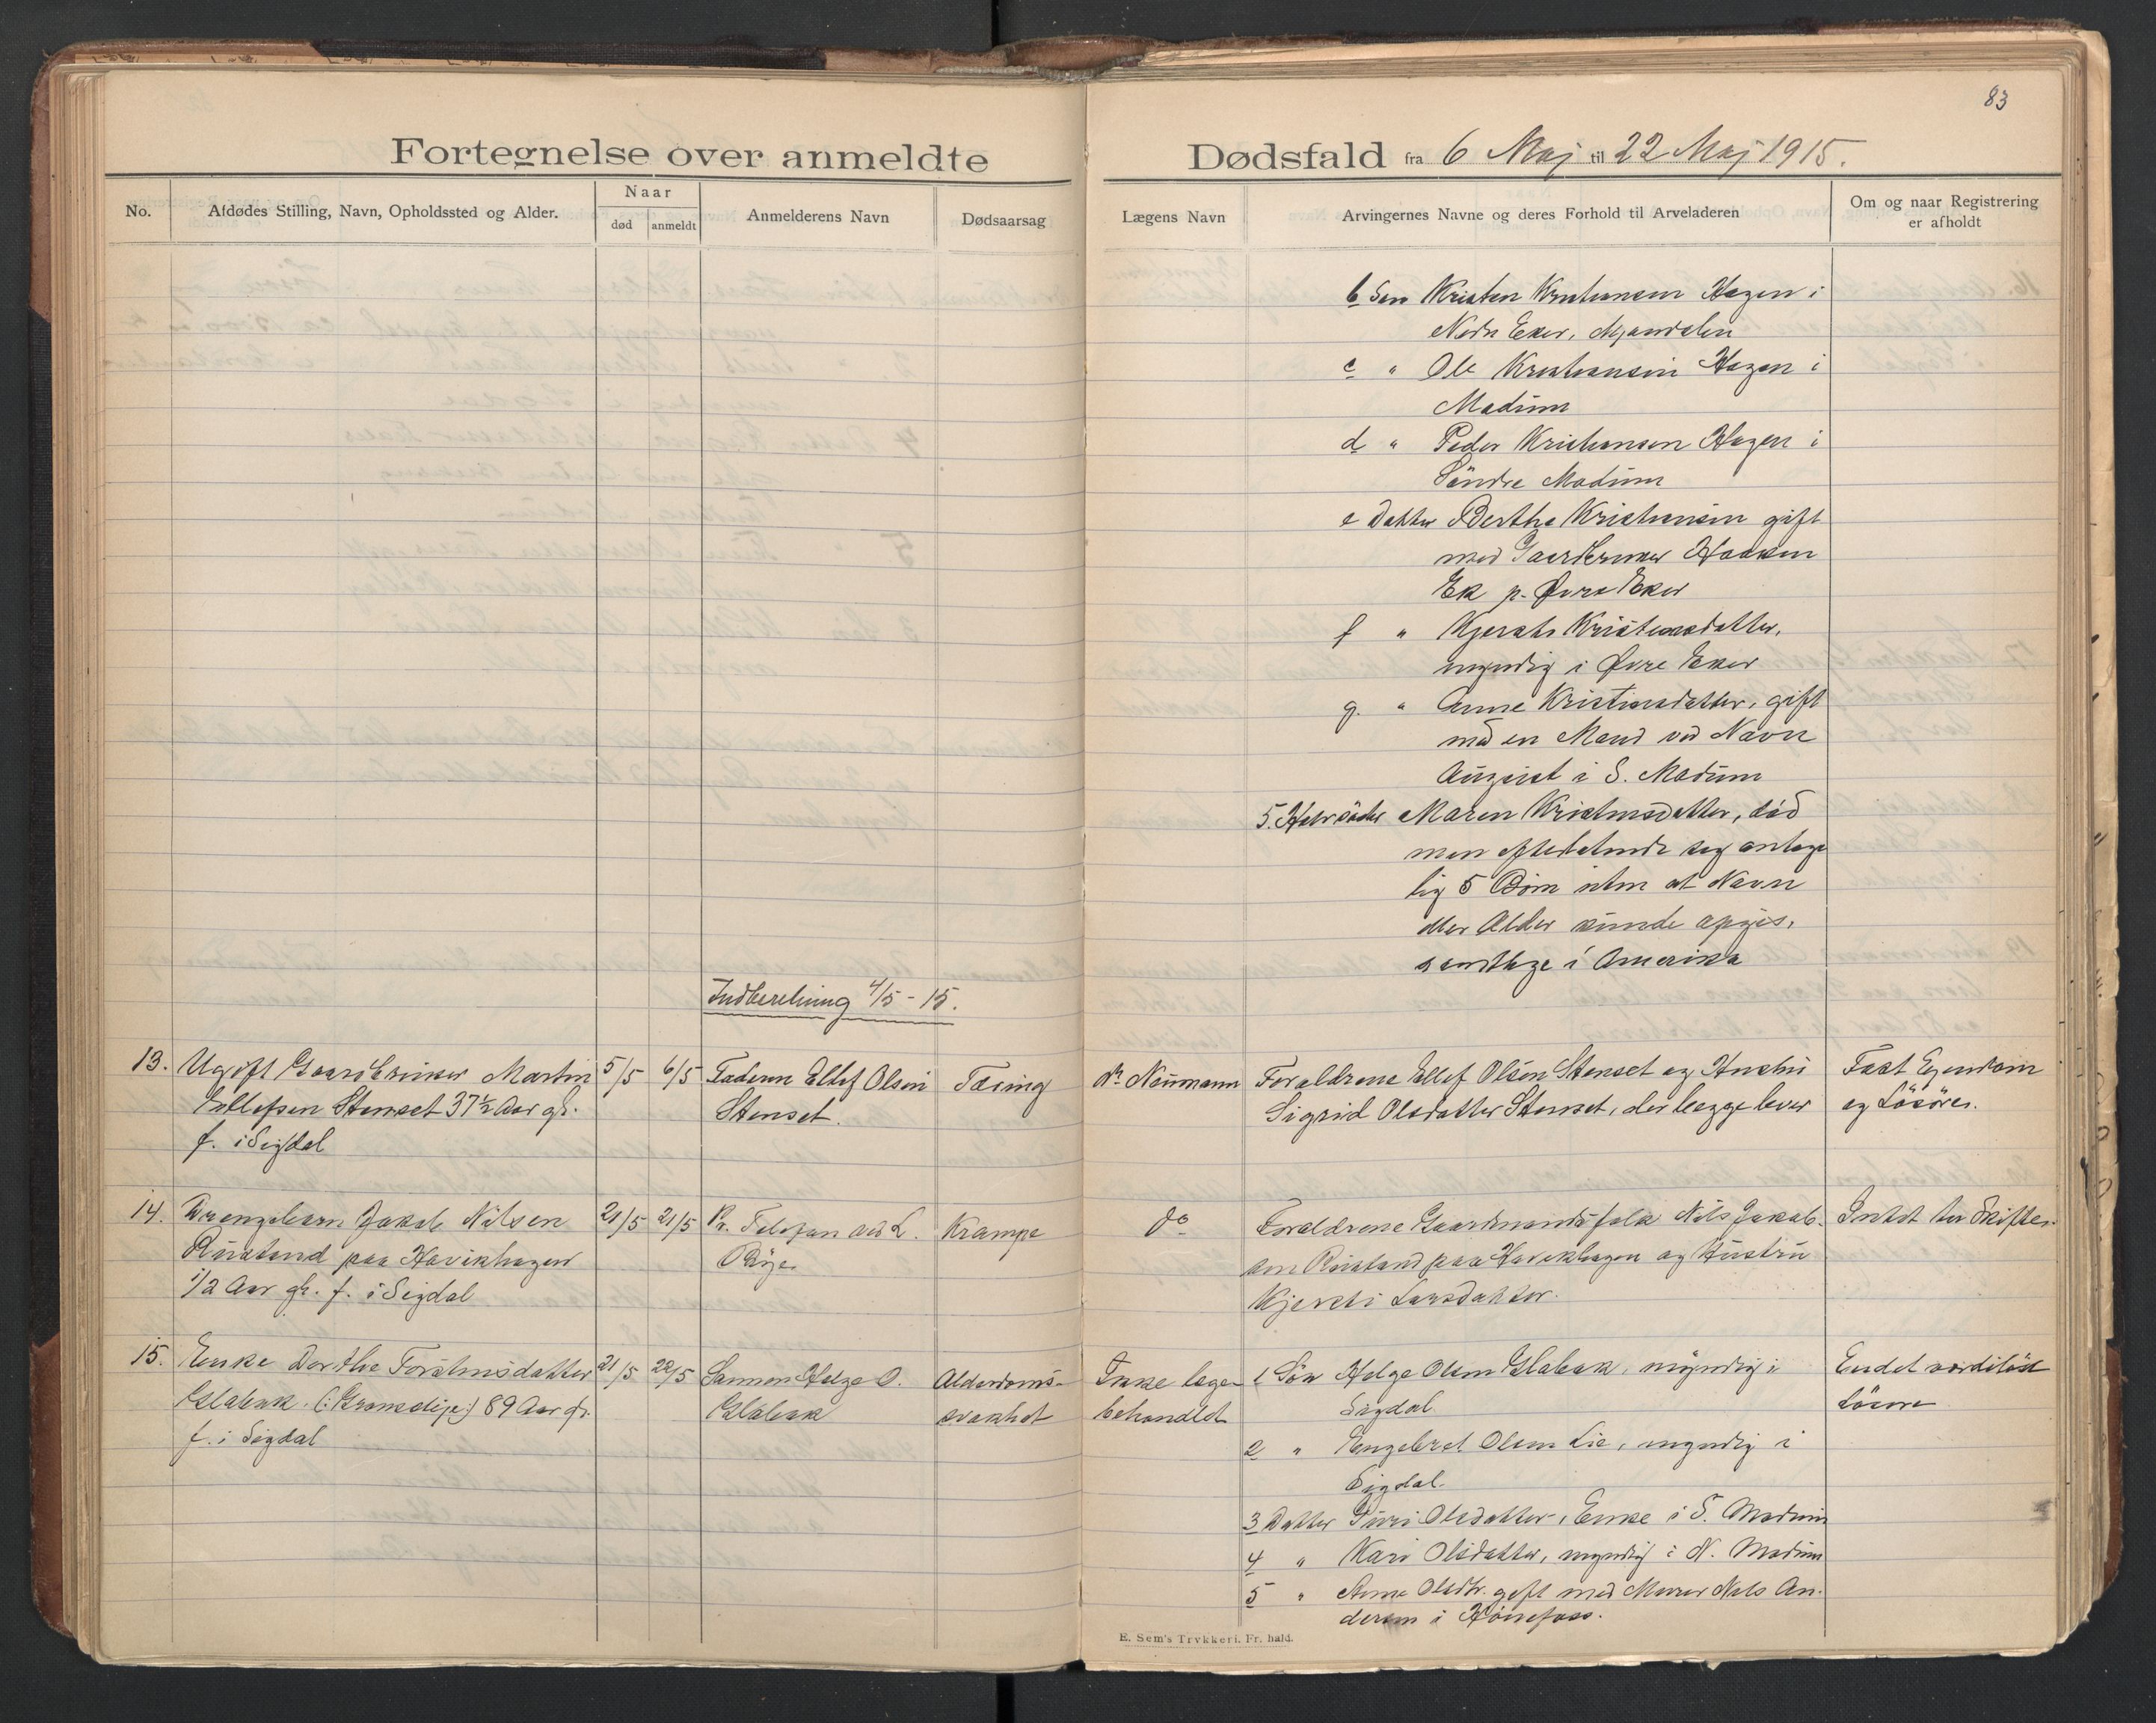 83
Fortegnelse over anmeldte Dødsfald fra 6 Maj til 22 Maj 1915.
No.
Afdødes Stilling, Navn, Opholdssted og Alder.
Naar
død
anmeldt
Anmelderens Navn
Dødsaarsag
Lægens Navn
Arvingernes Navne og deres Forhold til Arveladeren
Om og naar Registrering
er afholdt
b Søn Kristen Kristiansen Hagen i
Nedre Eker, Mjøndalen
c " Ole Kristiansen Hagen i
Modum
d " Peder Kristiansen Hagen i
Søndre Modum
e Datter Berthe Kristiansen gift
med Gaardbruker Haaken
Ek p. Øvre Eker
f " Kjersti Kristensdatter,
myndig i Øvre Eker
g. " Anne Kristensdatter, gift
med en Mand ved Navn
August i S. Modum
5. Halvsøster Maren Kristensdatter, død
men efterlatende seg antage
lig 5 Børn uten at Navn
eller Alder kunde opgis,
samtlige i Amerika
Indberetning 4/5 - 15.
13. Ugift Gaardbruker Martin
Ellefsen Stenset 37½ Aar gl.
f. i Sigdal
5/5
6/5
Faderen Ellef Olsen
Stenset.
Tæring
Dr. Naumann
Foraldrene Ellef Olsen Stenset og Hustru
Sigrid Olsdatter Stenset, der begge lever
Fast Egendom
og Løsøre.
14. Drengebarn Jakob Nilsen
Rustand paa Havikhagen
1/2 Aar gl. f. i Sigdal
21/5
21/5
Pr. Telefon ved L.
Bøye
Krampe
do
Foraldrene Gaardmandsfolk Nils Jakob-
sen Rustand paa Havikhagen og Hustru
Kjersti Larsdatter.
Intet til Skifte.
15. Enke Dorthe Torstensdatter
Glabak (: Gramsdije :) 89 Aar gl.
f. i Sigdal
21/5
22/5
Sønnen Helge O.
Glabak
Alderdoms-
svakhet
Ikke læge-
behandlet
1 Søn Helge Olsen Glabak, myndig i
Sigdal
2 " Engebret Olsen Lie, myndig i
Sigdal.
3 Datter Guri Olsdatter, Enke i S. Modum
4 " Kari Olsdatter, myndig i N. Modum
5 " Anne Olsdtr. gift med Murer Nils An-
dersen i Hønefoss.
Endel værdiløst
Løsøre
E. Sem's Trykkeri. Fr. hald.